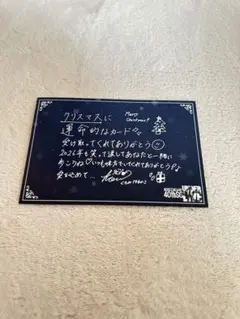 クリスマスに
Merry
Christmas!
運命的なカード
受け取ってくれてありがとう
2026年も笑って涙してあなたと一緒に
歩こうね♡いつも味方でいてくれてありがとう
愛を込めて...